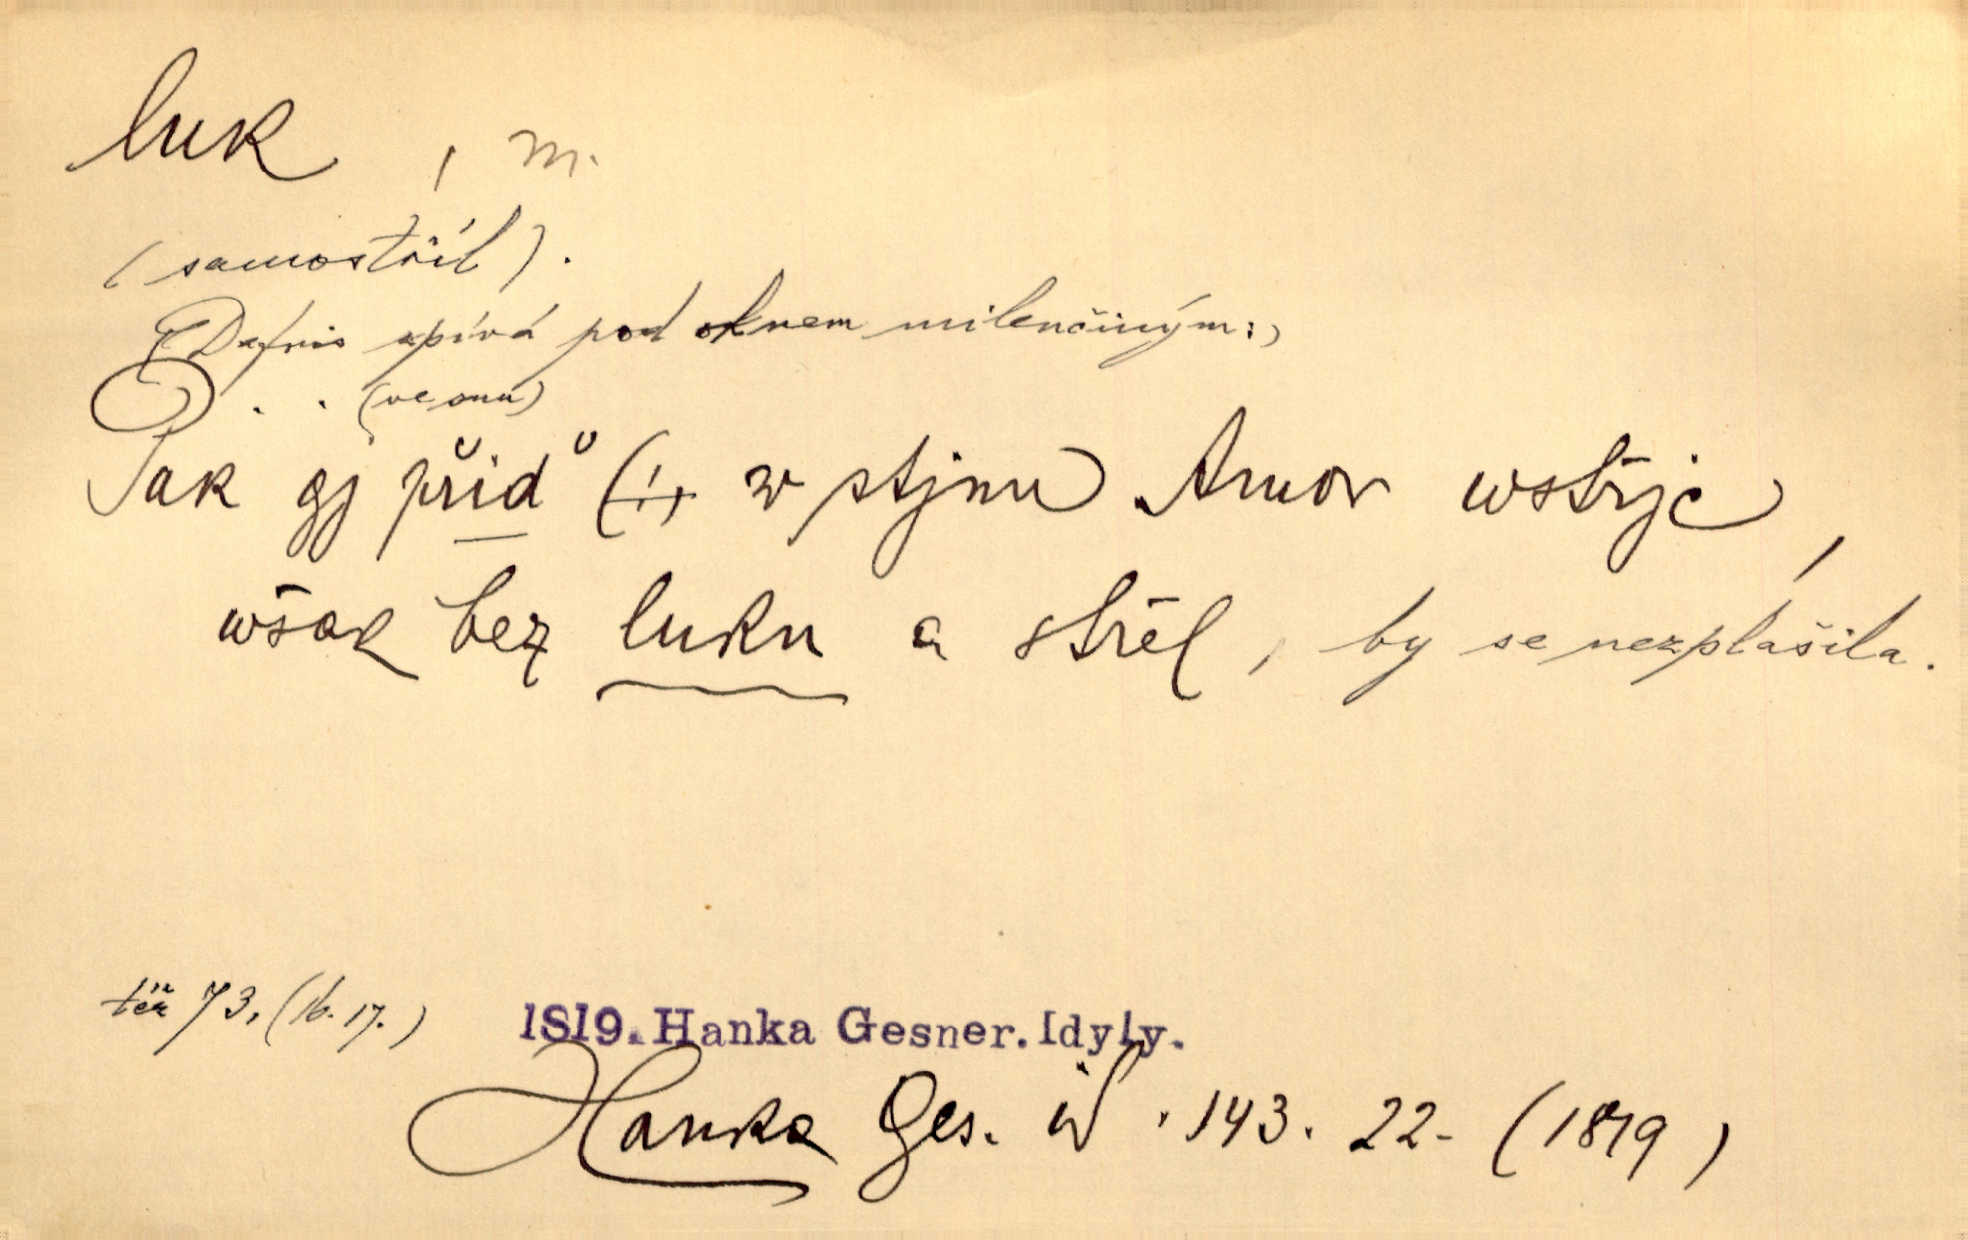 luk , m.
(samostříl).
(Dafnis zpívá pod oknem milenčiným:)
. . (ve snu)
Tak gj přid˚ w stjnu Amor wstřjc,
wšak bez luku a střel, by se nezplašila.
též 73, (16. 17.) 1819. Hanka Gesner. Idyly.
Hanka Ges. id . 143. 22- (1819)